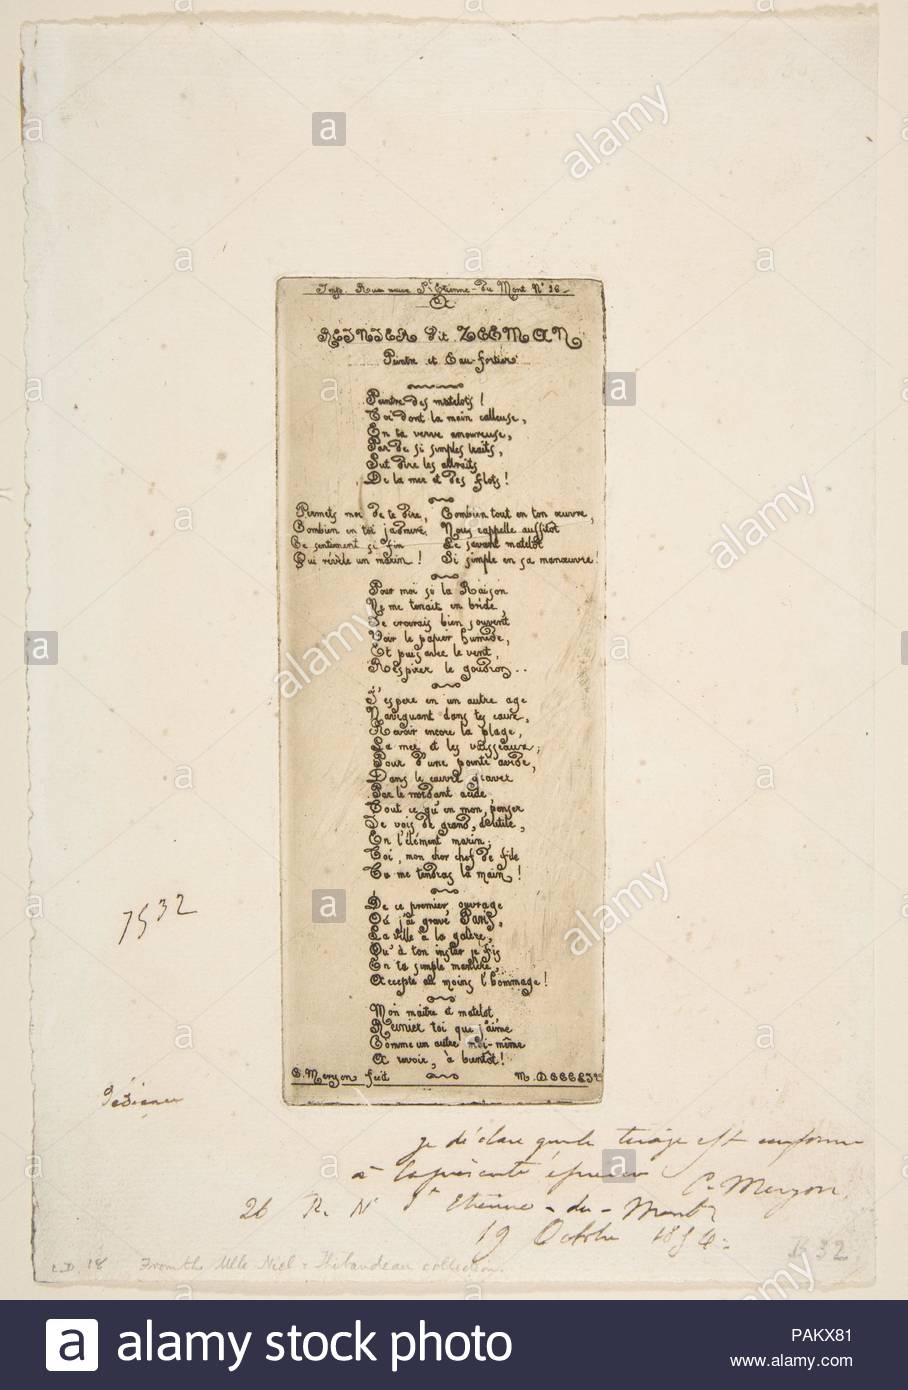 Imp. Rue neuve St Etienne-du Mont No 26.
A
REINIER dit ZEEMAN
Peintre et Eau-fortier.
Peintre des matelots !
Toi dont la main calleuse,
En ta verve amoureuse,
Par de si simples traits,
Sut dire les attraits
De la mer et des flots !
Permets moi de te dire,
Combien en toi j'admire
Ce sentiment si fin
Qui révèle un marin !
Combien tout en ton œuvre,
Nous rappelle aussitôt
Le savant matelot
Si simple en sa manœuvre !
Pour moi si la Raison
Ne me tenait en bride,
Je croirais bien souvent
Voir le papier humide,
Et puis avec le vent,
Respirer le goudron..
J'espère en un autre age
Naviguant dans tes eaux,
Revoir encore la plage,
La mer et les vaisseaux;
Pour d'une pointe avide,
Dans le cuivre graver
Par le mordant acide
Tout ce qu'en mon penser
Je vois de grand, d'utile,
En l'élément marin;
Toi, mon cher chef de file
Tu me tendras la main !
De ce premier ouvrage
Où j'ai gravé Paris,
La ville à la galère,
Qu'à ton instar je fis
En ta simple manière,
Accepte au moins l'hommage !
Mon maître et matelot
Reinier toi que j'aime
Comme un autre moi-même
Au revoir, à bientôt !
C. Meryon fecit
7532
je déclare que le tirage est conforme
à la présente épreuve C. Meryon,
26 R. N St Etienne-du-Mont
19 Octobre 1854.
L.D. 18 From the Mlle Niel - Thibaudeau collection.
B 32
alamy
alamy stock photo
PAKX81
www.alamy.com